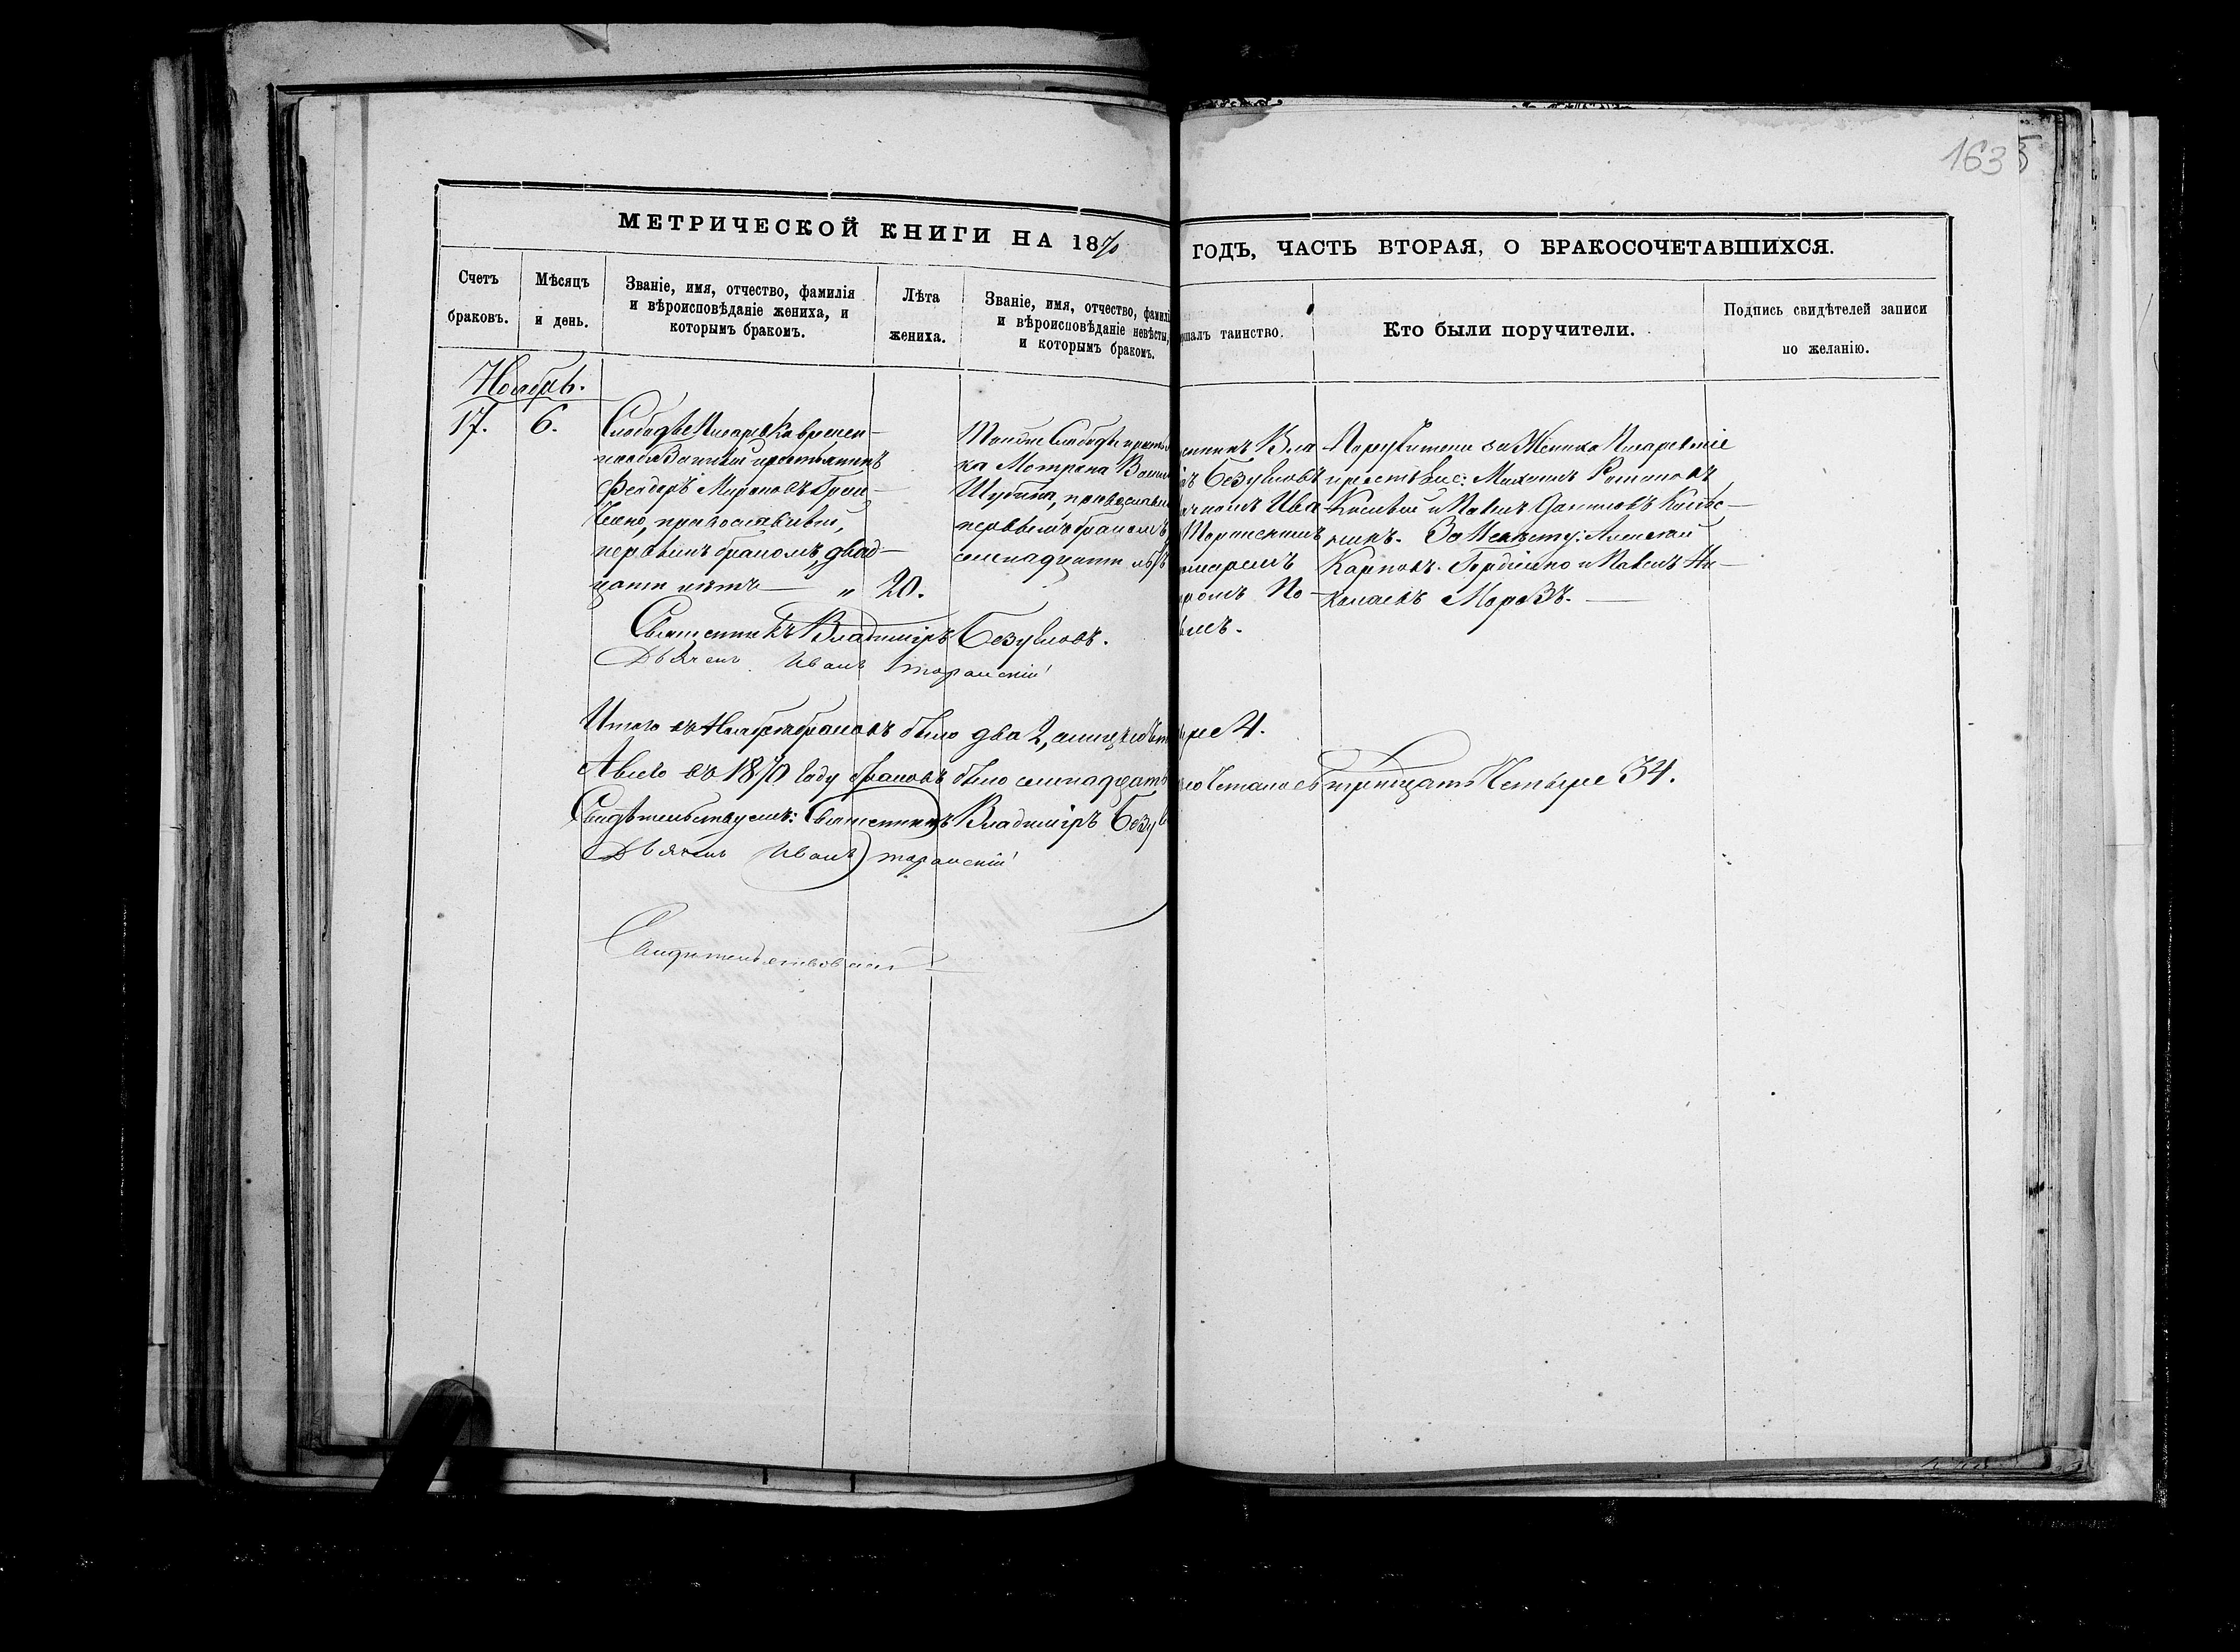 163
МЕТРИЧЕСКОЙ КНИГИ НА 1870 ГОДЪ, ЧАСТЬ ВТОРАЯ, О БРАКОСОЧЕТАВШИХСЯ.
Счетъ
браковъ.
Мѣсяцъ
и день.
Званіе, имя, отчество, фамилія
и вѣроисповѣданіе жениха, и
которымъ бракомъ.
Лѣта
жениха.
Званіе, имя, отчество, фамилі
и вѣроисповѣданіе невѣсты,
и которымъ бракомъ.
шалъ таинство.
Кто были поручители.
Подпись свидѣтелей записи
по желанію.
Ноябрь.
17. 6.
Слободы Писаревки времен-
нообязанный крестьянинъ
Феодоръ Мироновъ
православный,
первымъ бракомъ, двад-
цати лѣтъ — " 20.
Тойже Слободы крестья
ка Мотрона Васил
Шубина, православн
первымъ бракомъ
семнадцати лѣтъ
енникъ Вла
ъ Безуглов
ономъ Ива
Торанскимъ
омаремъ
ромъ По
вымъ.
Поручители за Жениха Писаревскіе
крестьяне: Михаилъ Романовъ
и Павелъ Даниловъ
За Невѣсту: Алексѣй
Карповъ Гордіенко и Павелъ Ни-
колаевъ Морозъ.
Священникъ Владиміръ Безугловъ.
Дьяконъ Иванъ Торанскій
Итого въ Ноябрѣ браковъ было два 2, а лицъ четыре 4.
А всего въ 1870 Году браковъ было семнадцать тридцать Четыре 34.
Свидѣтельствуемъ: Священникъ Владиміръ Безуг
Дьяконъ Иванъ Торанскій
Свидѣтельствовалъ